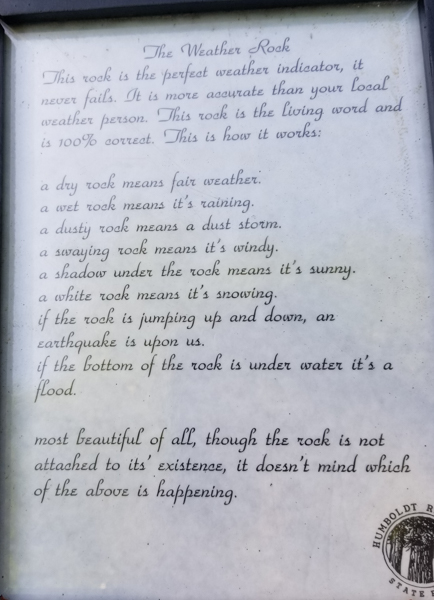 The Weather Rock
This rock is the perfect weather indicator, it
never fails. It is more accurate than your local
weather person. This rock is the living word and
is 100% correct. This is how it works:
a dry rock means fair weather.
a wet rock means it's raining.
a dusty rock means a dust storm.
a swaying rock means it's windy.
a shadow under the rock means it's sunny.
a white rock means it's snowing.
if the rock is jumping up and down, an
earthquake is upon us.
if the bottom of the rock is under water it's a
flood.
most beautiful of all, though the rock is not
attached to its' existence, it doesn't mind which
of the above is happening.
HUMBOLDT R
STATE